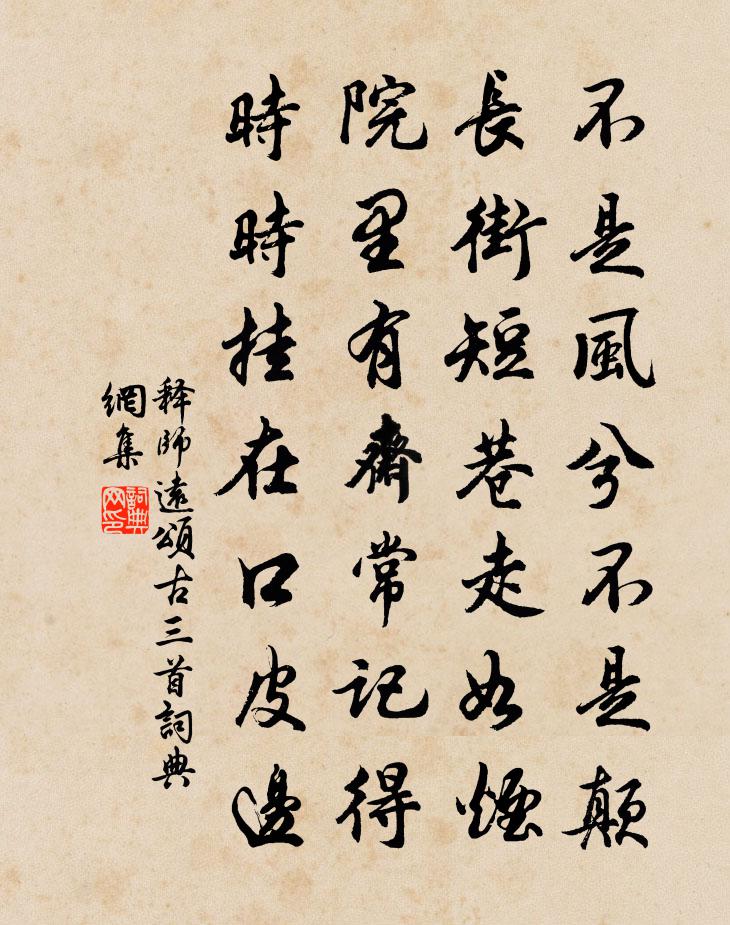 不是風兮不是顛
長街短巷走如煙
院里有齋常記得
時時挂在口皮邊
释師遠頌古三首詞典
網集
詞典网印